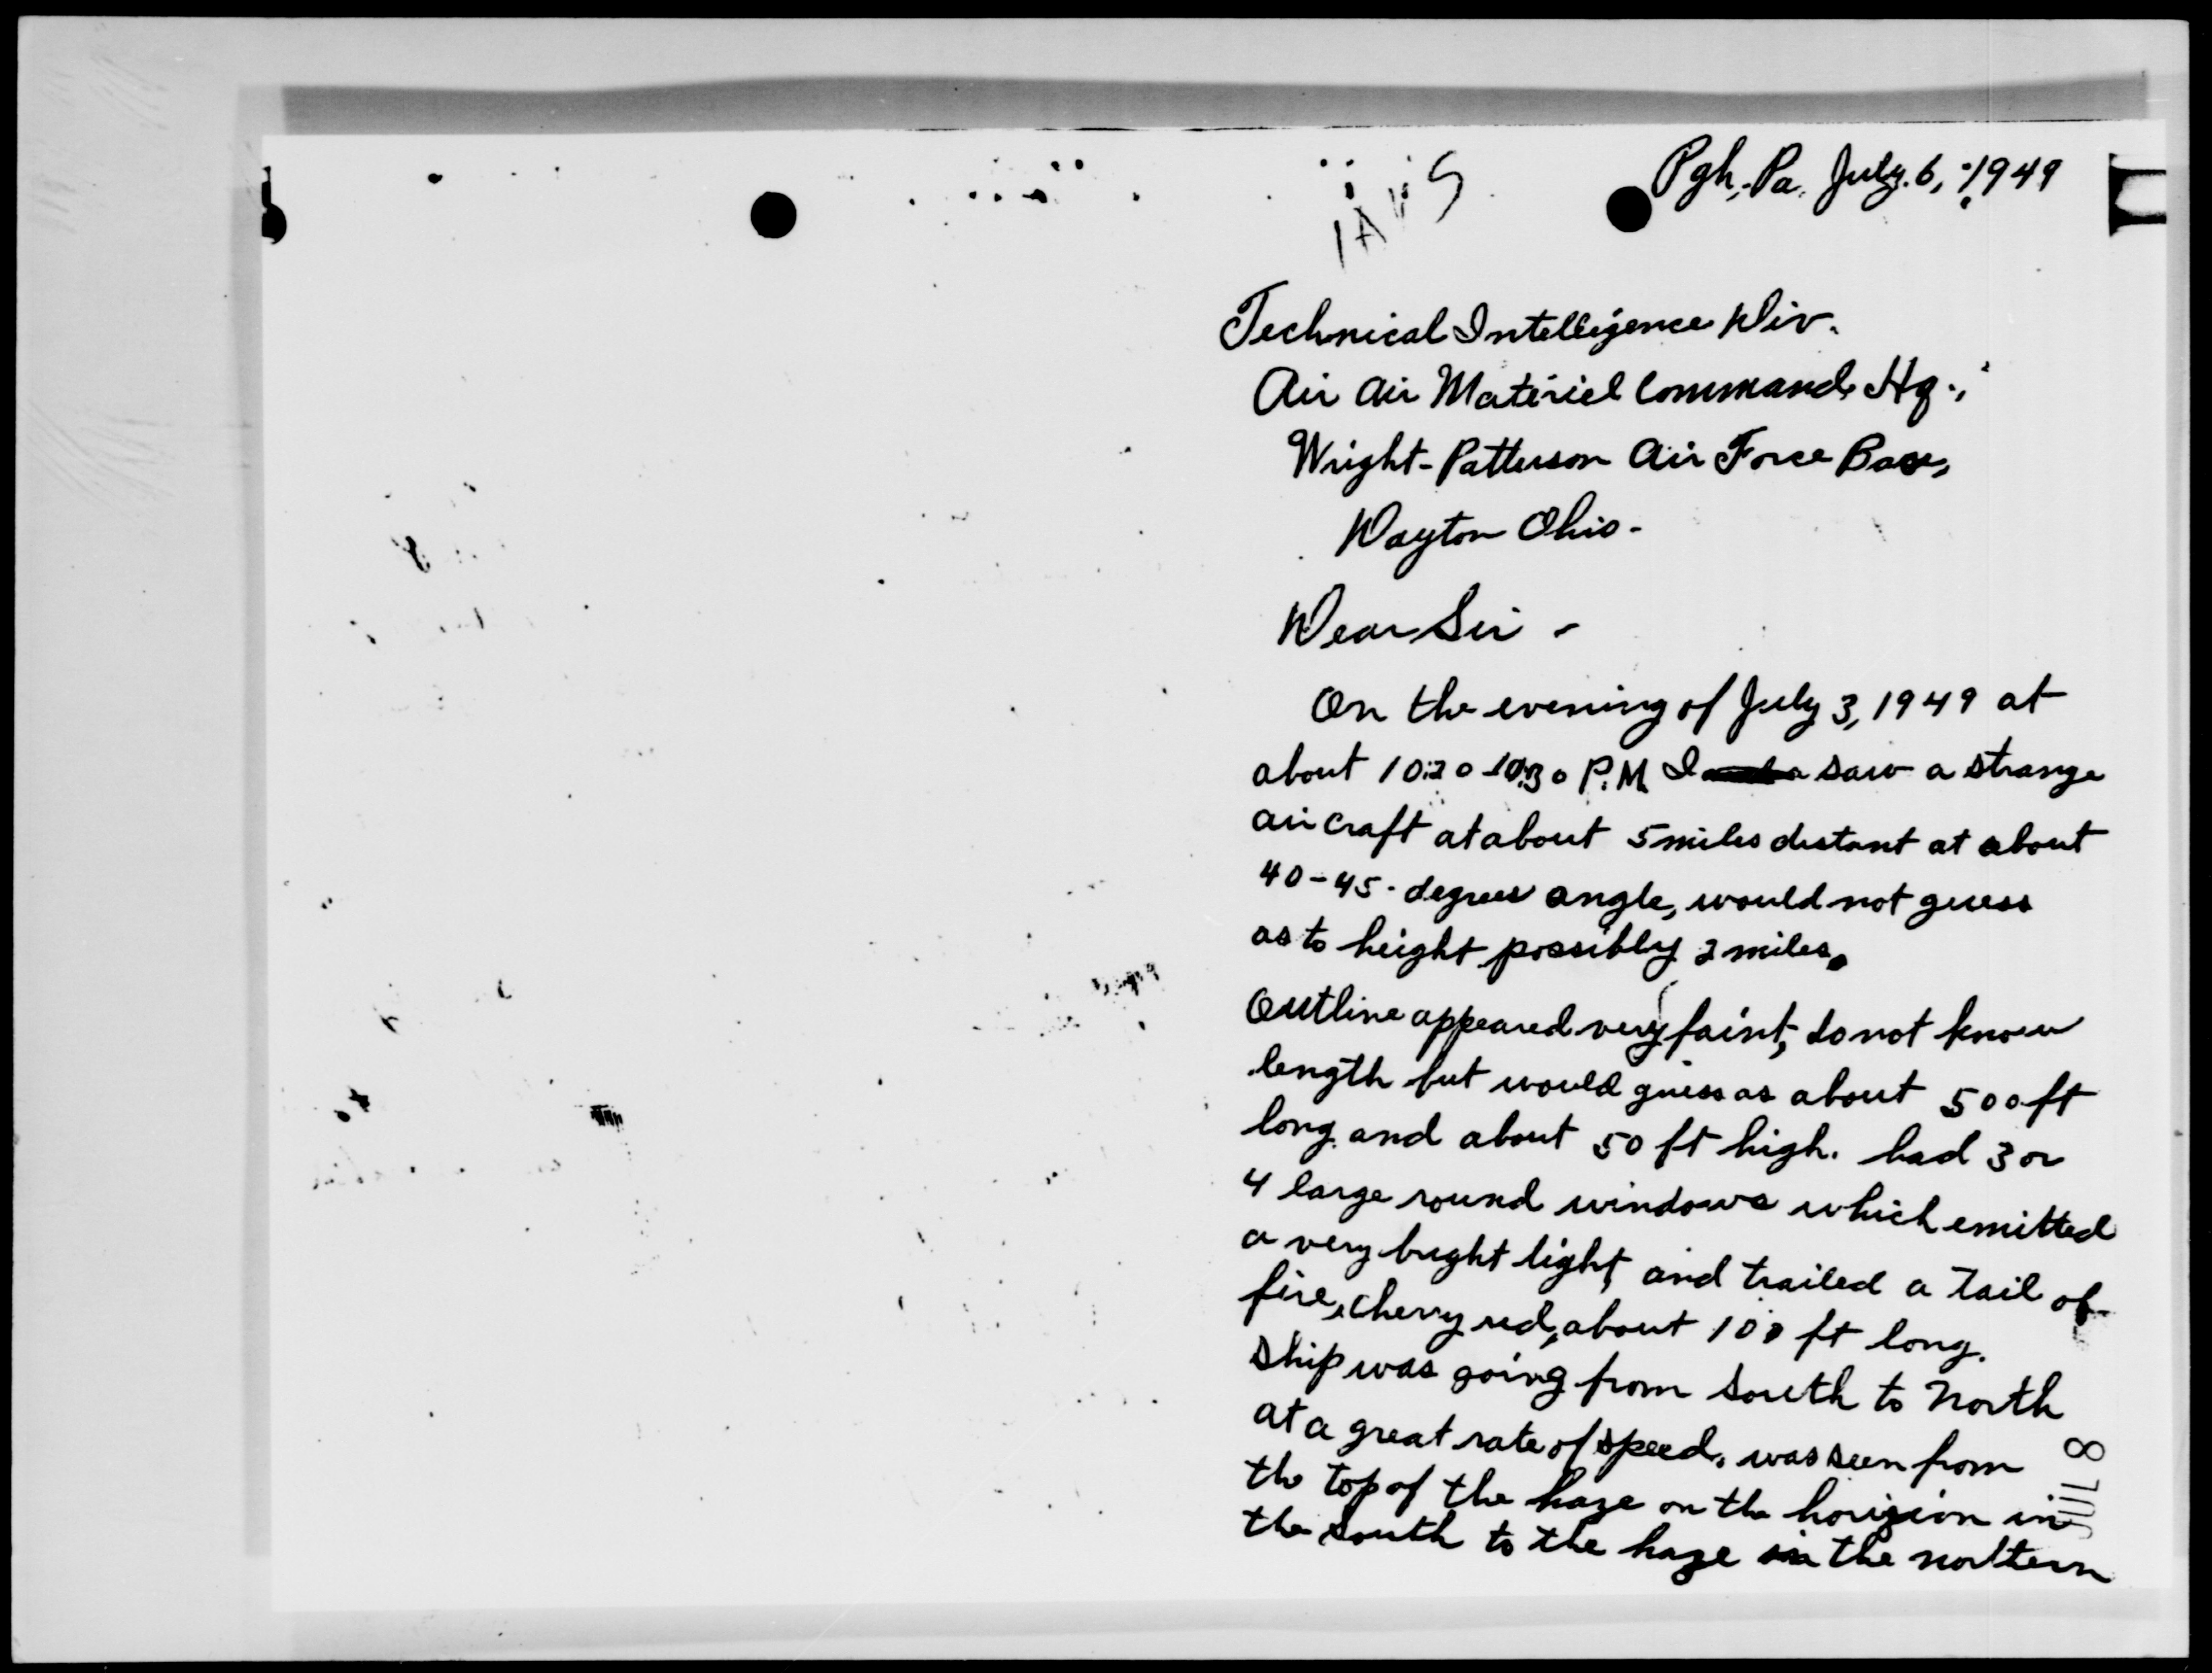 Pgh, Pa. July. 6, 1949
Technical Intelligence Div.
Air Air Matériel Command, Hq.,
Wright-Patterson Air Force Base,
Dayton Ohio-
Dear Sir -
On the evening of July 3, 1949 at
about 10:20-10:30 P.M. I saw a strange
aircraft at about 5 miles distant at about
40-45. degrees angle, would not guess
as to height possibly 2 miles.
Outline appeared very faint, do not know
length but would guess as about 500 ft
long. and about 50 ft high. had 3 or
4 large round windows which emitted
a very bright light, and trailed a Tail of
fire, cherry red, about 100 ft long.
Ship was going from South to North
at a great rate of speed, was seen from
the top of the haze on the horizion in
the South to the haze in the nortern
JUL 8